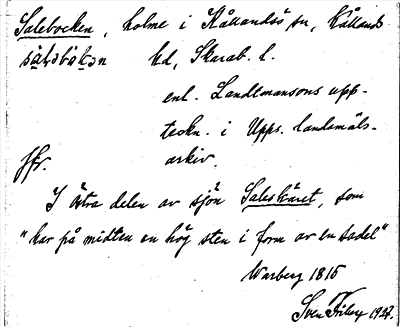 Salebocken, holme i Kållandsö sn, Kållands
hd, Skarab. l.
enl. Landtmansons upp-
teckn. i Upps. landsmåls-
arkiv.
Jfr.
I östra delen av sjön Saleskäret, som
"har på midten en hög sten i form av en sadel"
Warberg 1815
Sven 1927.